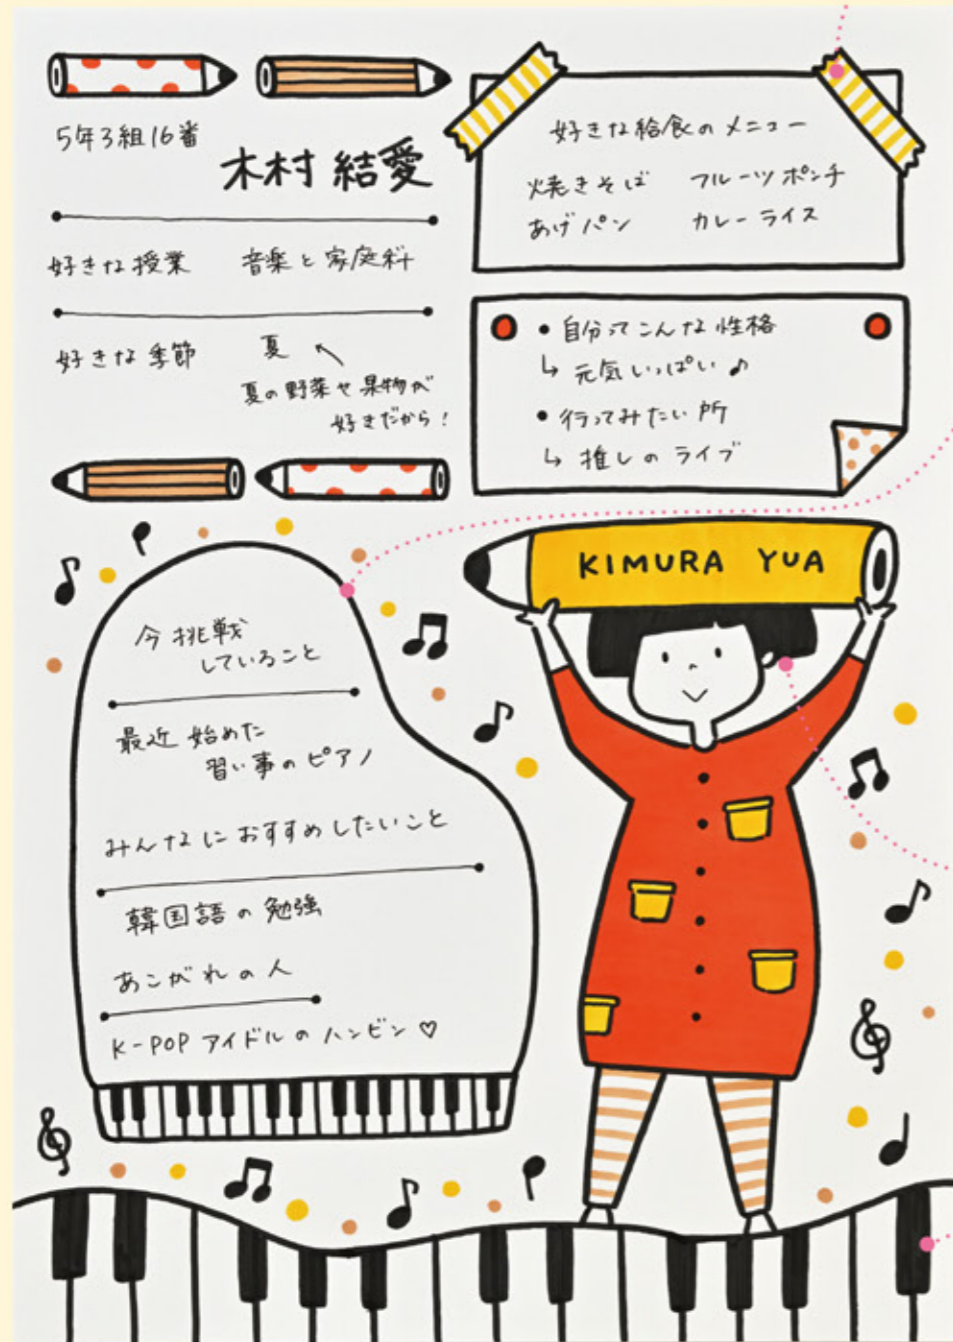 5年3組16番
木村 結愛
好きな授業 音楽と家庭科
好きな季節 夏
夏の野菜や果物が
好きだから!
好きな給食のメニュー
焼きそば フルーツポンチ
あげパン カレーライス
• 自分ってこんな性格
↳ 元気いっぱい♪
• 行ってみたい所
↳ 推しのライブ
KIMURA YUA
今挑戦
していること
最近始めた
習い事のピアノ
みんなにおすすめしたいこと
韓国語の勉強
あこがれの人
K-POPアイドルのハンビン♡